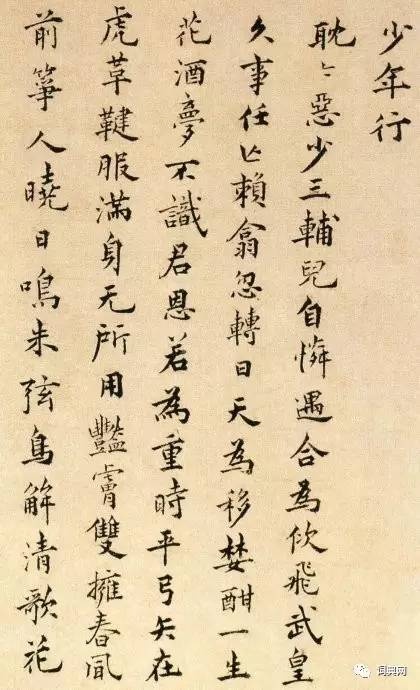 少年行
耽々惡少三輔兒自憐遇合為佽飛武皇
久事任亾賴翕忽轉日天為移婪酣一生
花酒夢不識君恩若為重時平弓矢在
虎革鞬服滿身无所用豔膏雙擁春凮
前箏人曉日鳴朱弦鳥解清歌花
词典网